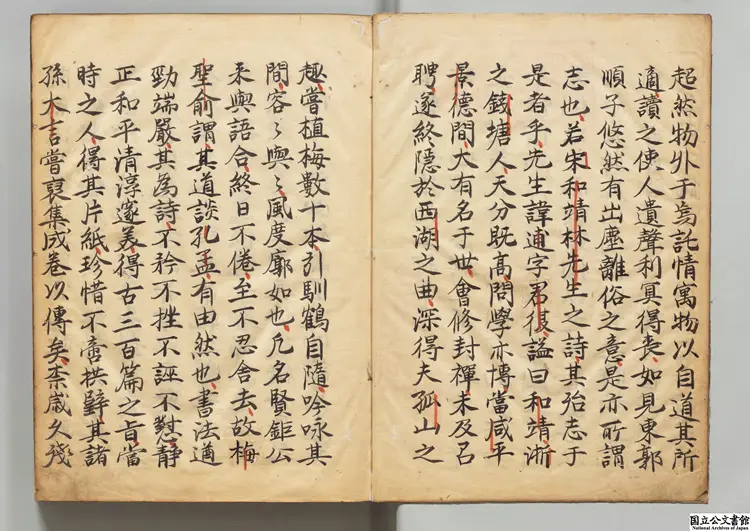 超然物外于焉託情寓物以自道其所
適讀之使人遺聲利冥得喪如見東郭
順子悠然有出塵離俗之意是亦所謂
志也若宋和靖林先生之詩其殆志于
是者乎先生諱逋字君復謚曰和靖浙
之錢塘人天分既高問學亦博當咸平
景德間大有名于世會修封禪未及召
聘遂終隱於西湖之曲深得夫孤山之
趣嘗植梅數十本引馴鶴自隨吟咏其
間容〻與〻風度廓如也凡名賢鉅公
来與語合終日不倦至不忍舍去故梅
聖俞謂其道談孔孟有由然也書法遒
勁端嚴其為詩不矜不挫不誣不懟静
正和平清淳邃美得古三百篇之旨當
時之人得其片紙珍惜不啻拱璧其諸
孫大言嘗裒集成卷以傳矣柰歲久殘
国立公文書館
National Archives of Japan